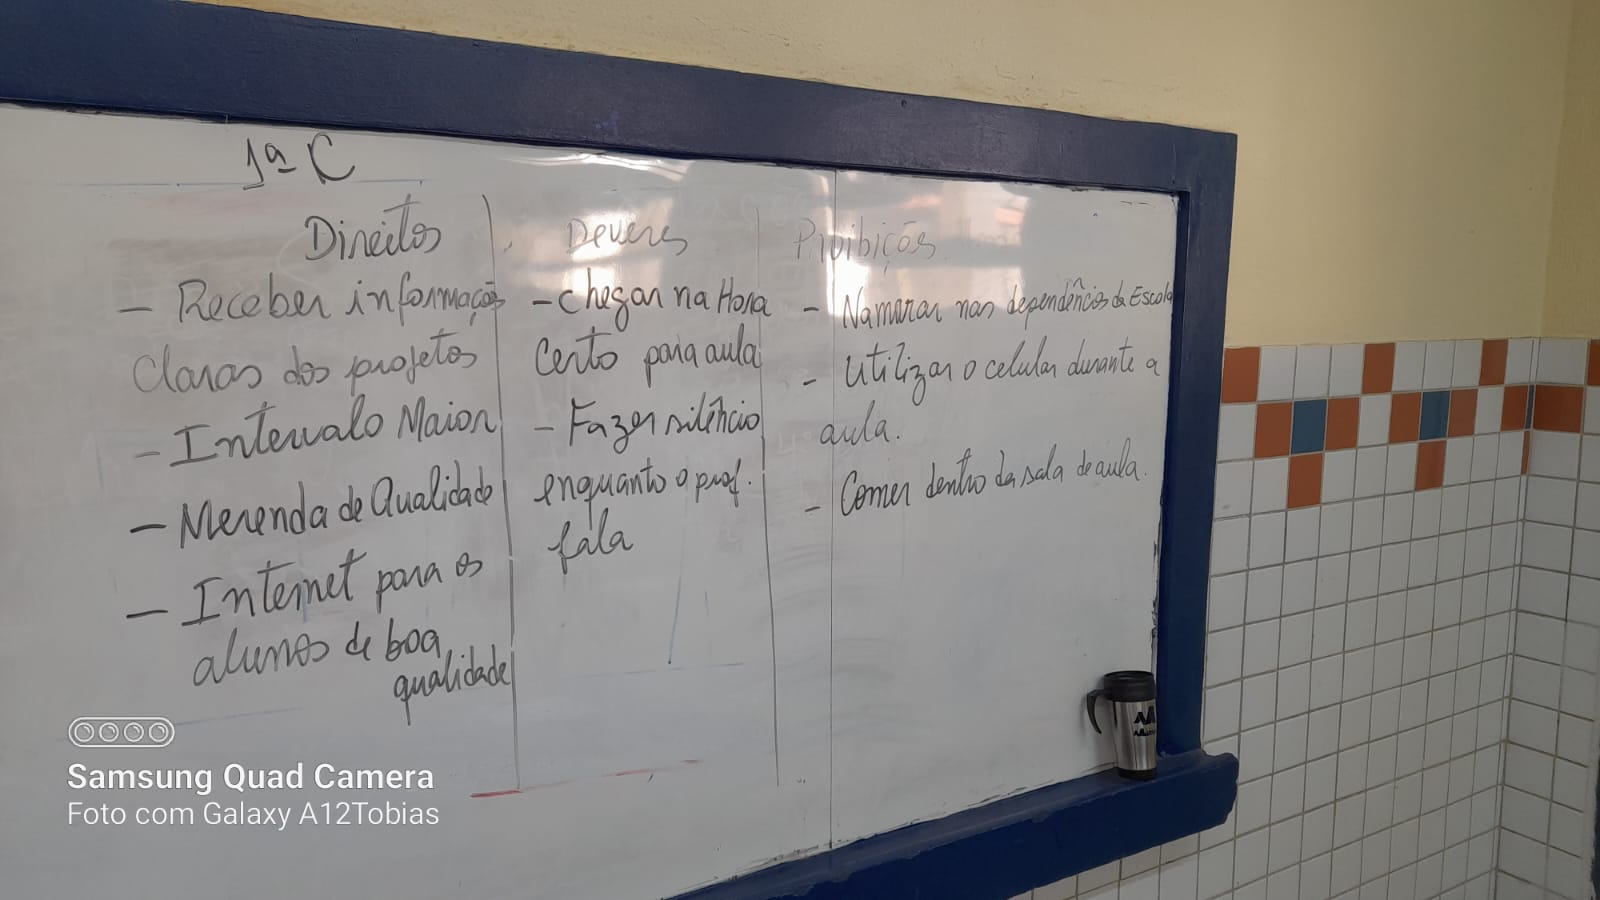 1ª C
Direitos
- Receber informações
Claras dos projetos
- Intervalo Maior
- Merenda de Qualidade
- Internet para os
alunos de boa
qualidade
Deveres
- chegar na Hora
Certo para aula
- Fazer silêncio
enquanto o prof.
fala
Proibições
- Namorar nas dependências da Escola
- Utilizar o celular durante a
aula.
- Comer dentro da sala de aula.
Samsung Quad Camera
Foto com Galaxy A12Tobias